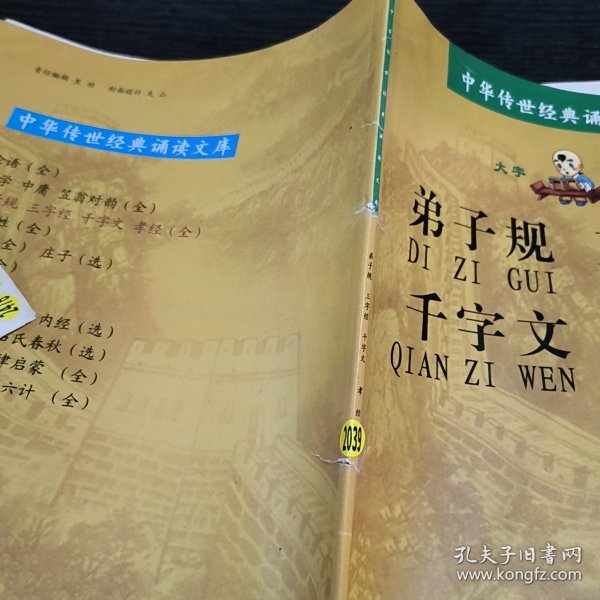 责任编辑 里 明 封面设计 大 山
中华传世经典诵读文库
论语(全)
学 中庸 笠翁对韵(全)
规 三字经 千字文 孝经(全)
姓(全)
全) 庄子(选)
全)
内经(选)
吕氏春秋(选)
律启蒙 (全)
六计 (全)
弟子规 三字经 千字文 孝经
2039
中华传世经典诵
大字
弟子规
DI ZI GUI
千字文
QIAN ZI WEN
孔夫子旧书网
www.kongfz.com